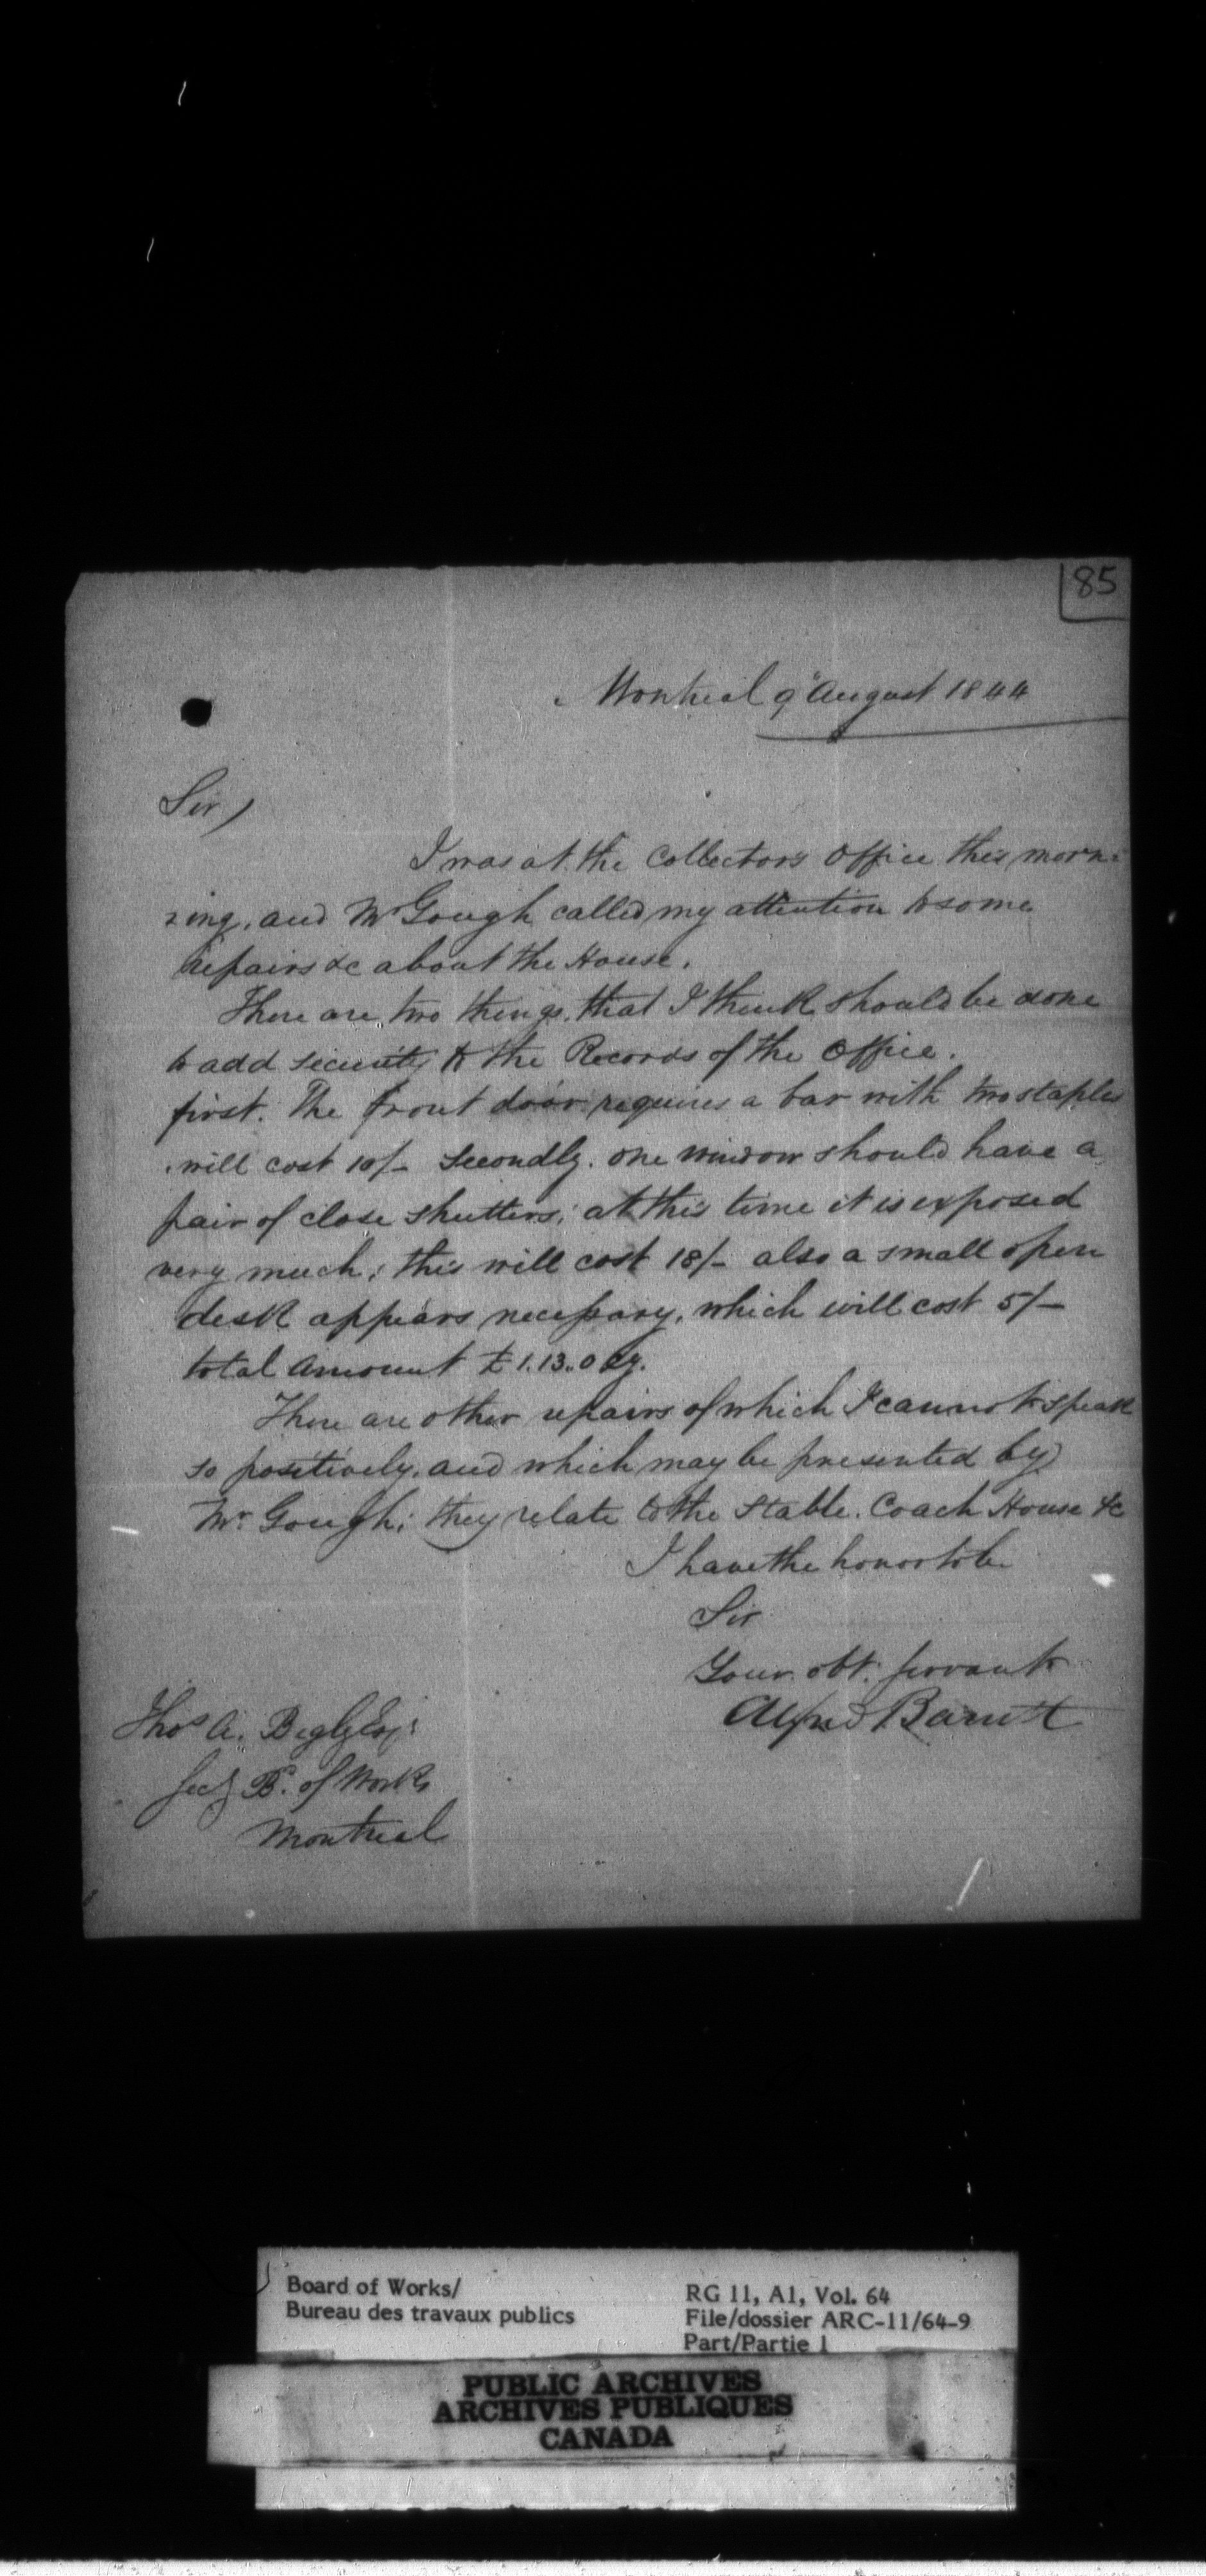 85
Montreal 9" August 1844
Sir,
I was at the Collectors Office this morn=
=ing, and Mr Gough called my attention to some
repairs &c about the House.
There are two things, that I think should be done
to add security to the Records of the Office.
first. The front door requires a bar with two staples
will cost 10/- Secondly. one window should have a
pair of close shutters; at this time it is exposed
very much; this will cost 18/- also a small open
desk appears necessary, which will cost 5/-
total Amount £1.13..0 Cy.
There are other repairs of which I cannot speak
so positively, and which may be presented by
Mr Gough; they relate to the Stable. Coach House &c
I have the honor to be
Sir
Your obt. servant
Alfred Barrett
Thos A. Begly Esqr
Secy Bd. of Works
Montreal
Board of Works/
Bureau des travaux publics
RG 11, A1, Vol. 64
File/dossier ARC-11/64-9
Part/Partie 1
PUBLIC ARCHIVES
ARCHIVES PUBLIQUES
CANADA